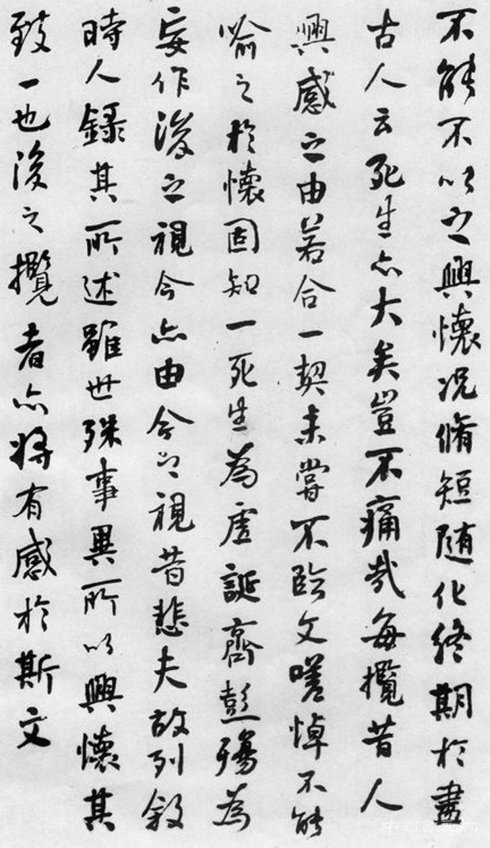 不能不以之興懷况脩短随化終期於盡
古人云死生亦大矣豈不痛哉每攬昔人
興感之由若合一契未嘗不臨文嗟悼不能
喻之於懷固知一死生為虚誕齊彭殤為
妄作後之視今亦由今之視昔悲夫故列敘
時人錄其所述雖世殊事異所以興懷其
致一也後之攬者亦將有感於斯文